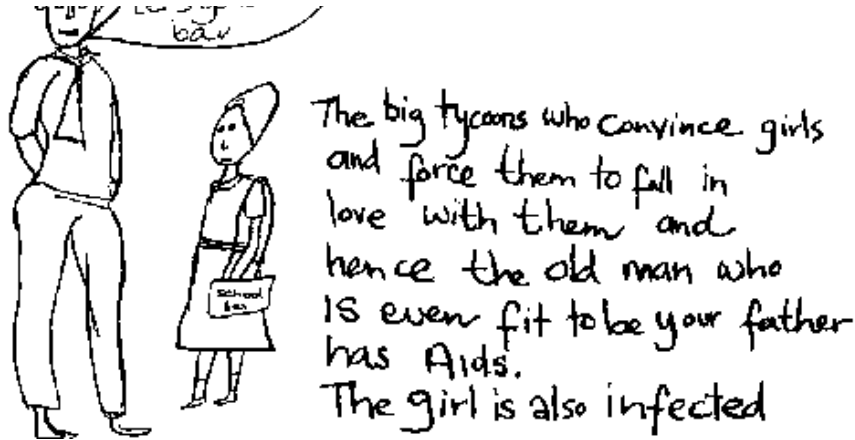 bar
The big tycoons who convince girls
and force them to fall in
love with them and
hence the old man who
is even fit to be your father
has Aids.
The girl is also infected
school